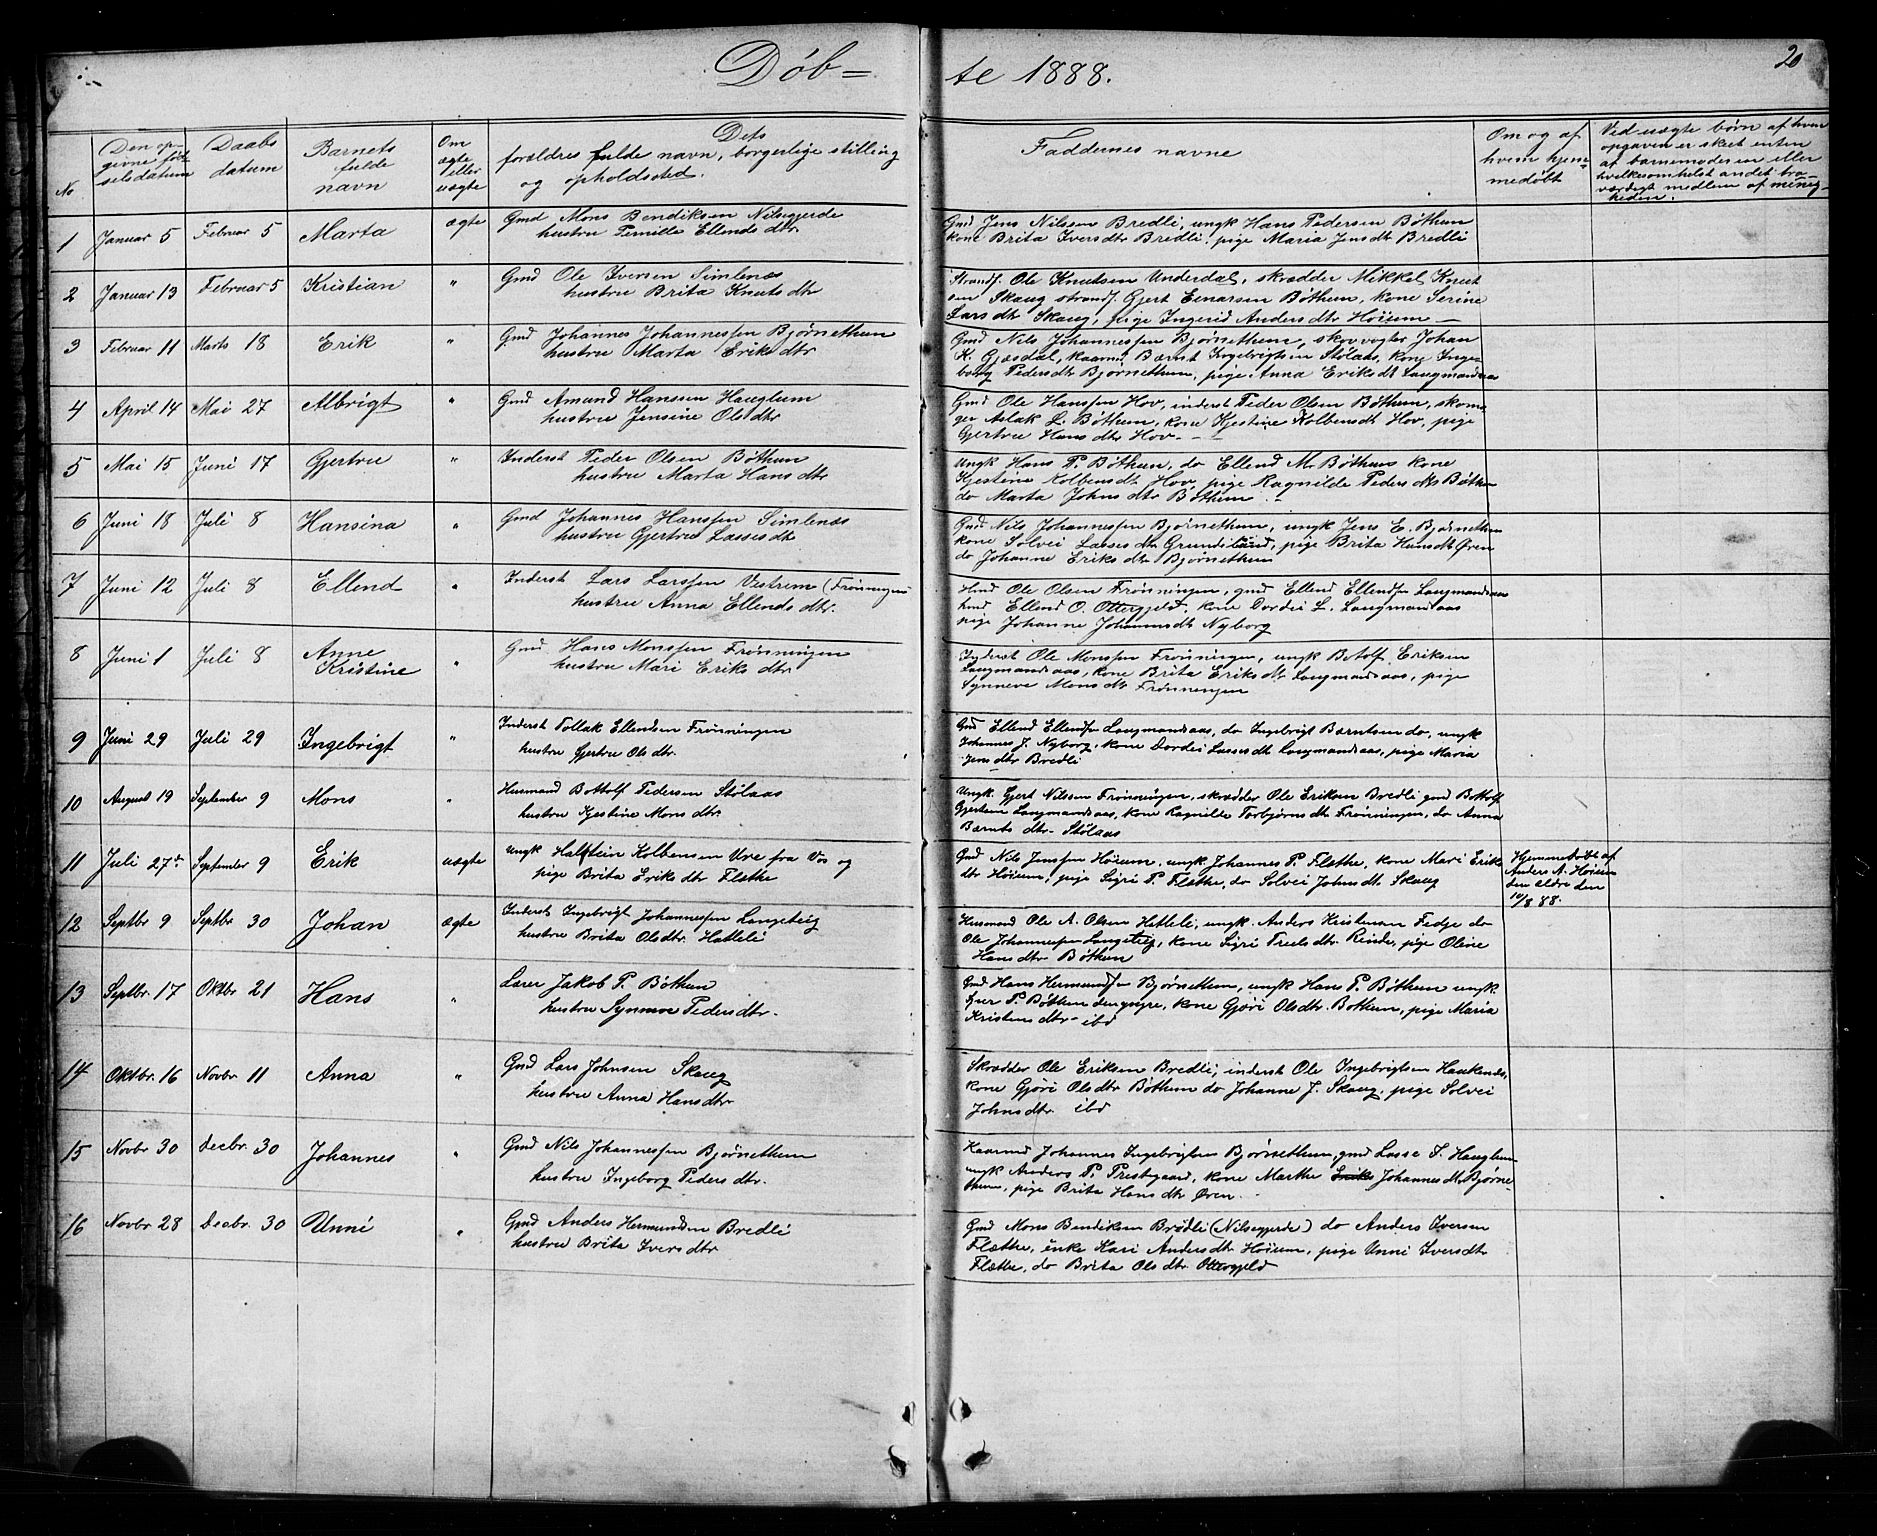 Døb= te 1888.
20
No
Den op-
givne fød-
selsdatum
Daabs
datum
Barnets
fulde
navn
Om
ægte
eller
uægte
Dets
forældres fulde navn, borgerlige stilling
og opholdssted.
Faddernes navne
Om og af
hvem hjem-
medøbt
Ved uægte børn af hvem
opgaven er skeet enten
af barnemoderen eller
hvilkesomhelst andet tro-
værdigt medlem af menig-
heden.
1 Januar 5 Februar 5 Marta ægte Gmd Mons Bendiksen Nilsegjerde
hustru Pernille Ellends dtr
Gmd Jens Nilssen Bredli, ungk Hans Pedersen Bøthun
kone Brita Iversdtr Bredli, pige Maria Jensdt Bredli
2 Januar 13 Februar 5 Kristian " Gmd Ole Iversen Simlenæs
hustru Brita Knuts dtr
Strandf. Ole Knutsen Underdal, skrædder Mikkel Knut
sen Skaug strandf. Gjert Einarsen Bøthun, kone Serine
Lars dtr Skaug, pige Ingerid Anders dtr Høium —
3 Februar 11 Marts 18 Erik " Gmd Johannes Johannessen Bjørnethun
hustru Marta Eriks dtr
Gmd Nils Johannessen Bjørnethun, skovvogter Johan
K. Gjesdal, kaarmd Bærnt Ingebrigtsen Stølaas, kone Inge-
borg Pedersdtr Bjørnethun, pige Anna Eriksdt Laugmandsaas
4 April 14 Mai 27 Albrigt " Gmd Amund Hanssen Hauglum
hustru Jensine Ols dtr
Gmd Ole Hanssen Hov, inderst Peder Olsen Bøthun, skoma
ger Aslak L. Bøthun, kone Kjestine Kolbensdt Hov, pige
Gjertru Hans dtr Hov - -
5 Mai 15 Juni 17 Gjertru " Inderst Peder Olsen Bøthun
hustru Marta Hans dtr
Ungk Hans P. Bøthun, do Ellend M. Bøthun kone
Kjestine Kolbensdt Hov, pige Ragnilde Peders dtr Bøthun
do Marta Johns dtr Bøthun -
6 Juni 18 Juli 8 Hansina " Gmd Johannes Hanssen Simlenæs
hustru Gjertru Lassesdt
Gmd Nils Johannessen Bjørnethun, ungk Jens E. Bjørnethun
kone Solvei Lasses dtr Grundeland, pige Brita Hansdt Øren
do Johanne Eriks dtr Bjørnethun
7 Juni 12 Juli 8 Ellend " Inderst Lars Larssen Vestrem (Frønningen
hustru Anna Ellends dtr.
Hmd Ole Olsen Frønningen, gmd Ellend Ellendsen Laugmandsaas
hmd Ellend O. Ottergjeld, kone Dordei L. Laugmandsaas
pige Johanne Johannesdt Nyborg
8 Juni 1 Juli 8 Anne
Kristine " Gmd Hans Monssen Frønningen
hustru Mari Eriks dtr
Inderst Ole Monssen Frønningen, ungk Botolf Eriksen
Laugmandsaas, kone Brita Eriks dtr Laugmandsaas, pige
Synneva Mons dtr Frønningen
9 Juni 29 Juli 29 Ingebrigt " Inderst Tollak Ellendsen Frønningen
hustru Gjertru Ols dtr.
Gmd Ellend Ellendsen Laugmandsaas, do Ingebrigt Bærntsen do, ungk
Johannes J. Nyborg, kone Dordei Lasses dt Laugmandsaas, pige Maria
Jens dtr Bredli
10 August 19 September 9 Mons " Husmand Bottolf Pedersen Stølaas
hustru Kjestine Mons dtr.
Ungk. Gjert Nilssen Frønningen, skrædder Ole Eriksen Bredli gmd Bottolf
Gjertsen Laugmandsaas, kone Ragnilde Torbjørns dtr Frønningen, do Anna
Bærnts dtr Stølaas
11 Juli 27de September 9 Erik uægte ungk Halstein Kolbensen Ure fra Vos og
pige Brita Eriks dtr Flæthe
Gmd Nils Jenssen Høium, ungk Johannes P. Flæthe, kone Mari Eriks
dtr Høium, pige Sigri P. Flæthe, do Solvei Johnsdt Skaug
Hjemmedøbt af
Anders A. Høium
den eldre den
10/8 88.
12 Septbr 9 Septbr 30 Johan ægte Inderst Ingebrigt Johannessen Langeteig
hustru Brita Olsdtr. Hatleli
Husmand Ole A. Olsen Hatleli, ungk. Anders Kristensen Fedje do
Ole Johannessen Langeteig, kone Sigri Truls dtr Rinde, pige Oline
Hans dtr Bøthun
13 Septbr. 17 Oktbr. 21 Hans " Lærer Jakob P. Bøthun
hustru Synneve Peders dtr.
Gmd Hans Hermundsen Bjørnethun, ungk Hans P. Bøthun ungk.
Iver P. Bøthun den yngre, kone Gjøri Olsdtr. Bothun, pige Maria
Kristens dtr ibd
14 Oktbr. 16 Novbr. 11 Anna " Gmd Lars Johnsen Skaug
hustru Anna Hans dtr
Skrædder Ole Eriksen Bredli, inderst Ole Ingebrigtsen Haukenes,
kone Gjøri Olsdtr Bøthun do Johanne J. Skaug, pige Solvei
Johns dtr ibd
15 Novbr 30 Decbr. 30 Johannes " Gmd Nils Johannessen Bjørnethun
hustru Ingeborg Peders dtr.
Kaarmd Johannes Ingebrigtsen Bjørnethun, gmd Lasse I. Hauglum
ungk Anders P. Prestegaard, kone Marthe Eriks Johannes dt Bjørne-
thun, pige Brita Hans dtr Øren.
16 Novbr 28 Decbr. 30 Unni " Gmd Anders Hermundsen Bredli
hustru Brita Ivers dtr
Gmd Mons Bendiksen Brødli (Nilsegjerde) do Anders Iversen
Flæthe, enke Kari Andersdtr Høium, pige Unni Iversdtr
Flæthe, do Brita Ols dtr Ottergjeld